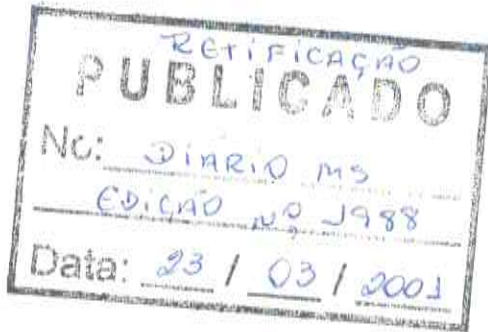 RETIFICAÇÃO
PUBLICADO
No: DIÁRIO MS
EDIÇÃO Nº 1988
Data: 23 / 03 / 2001